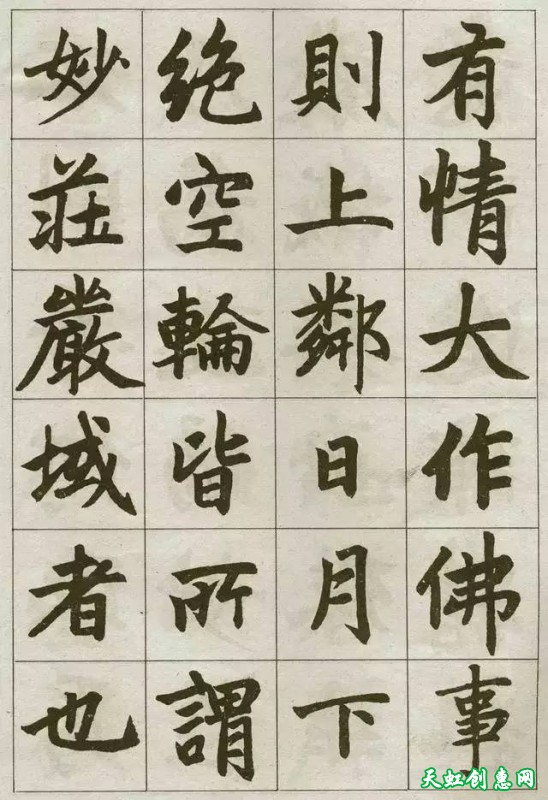 有情大作佛事
則上鄰日月下
絶空輪皆所謂
妙莊嚴域者也
天虹创惠网